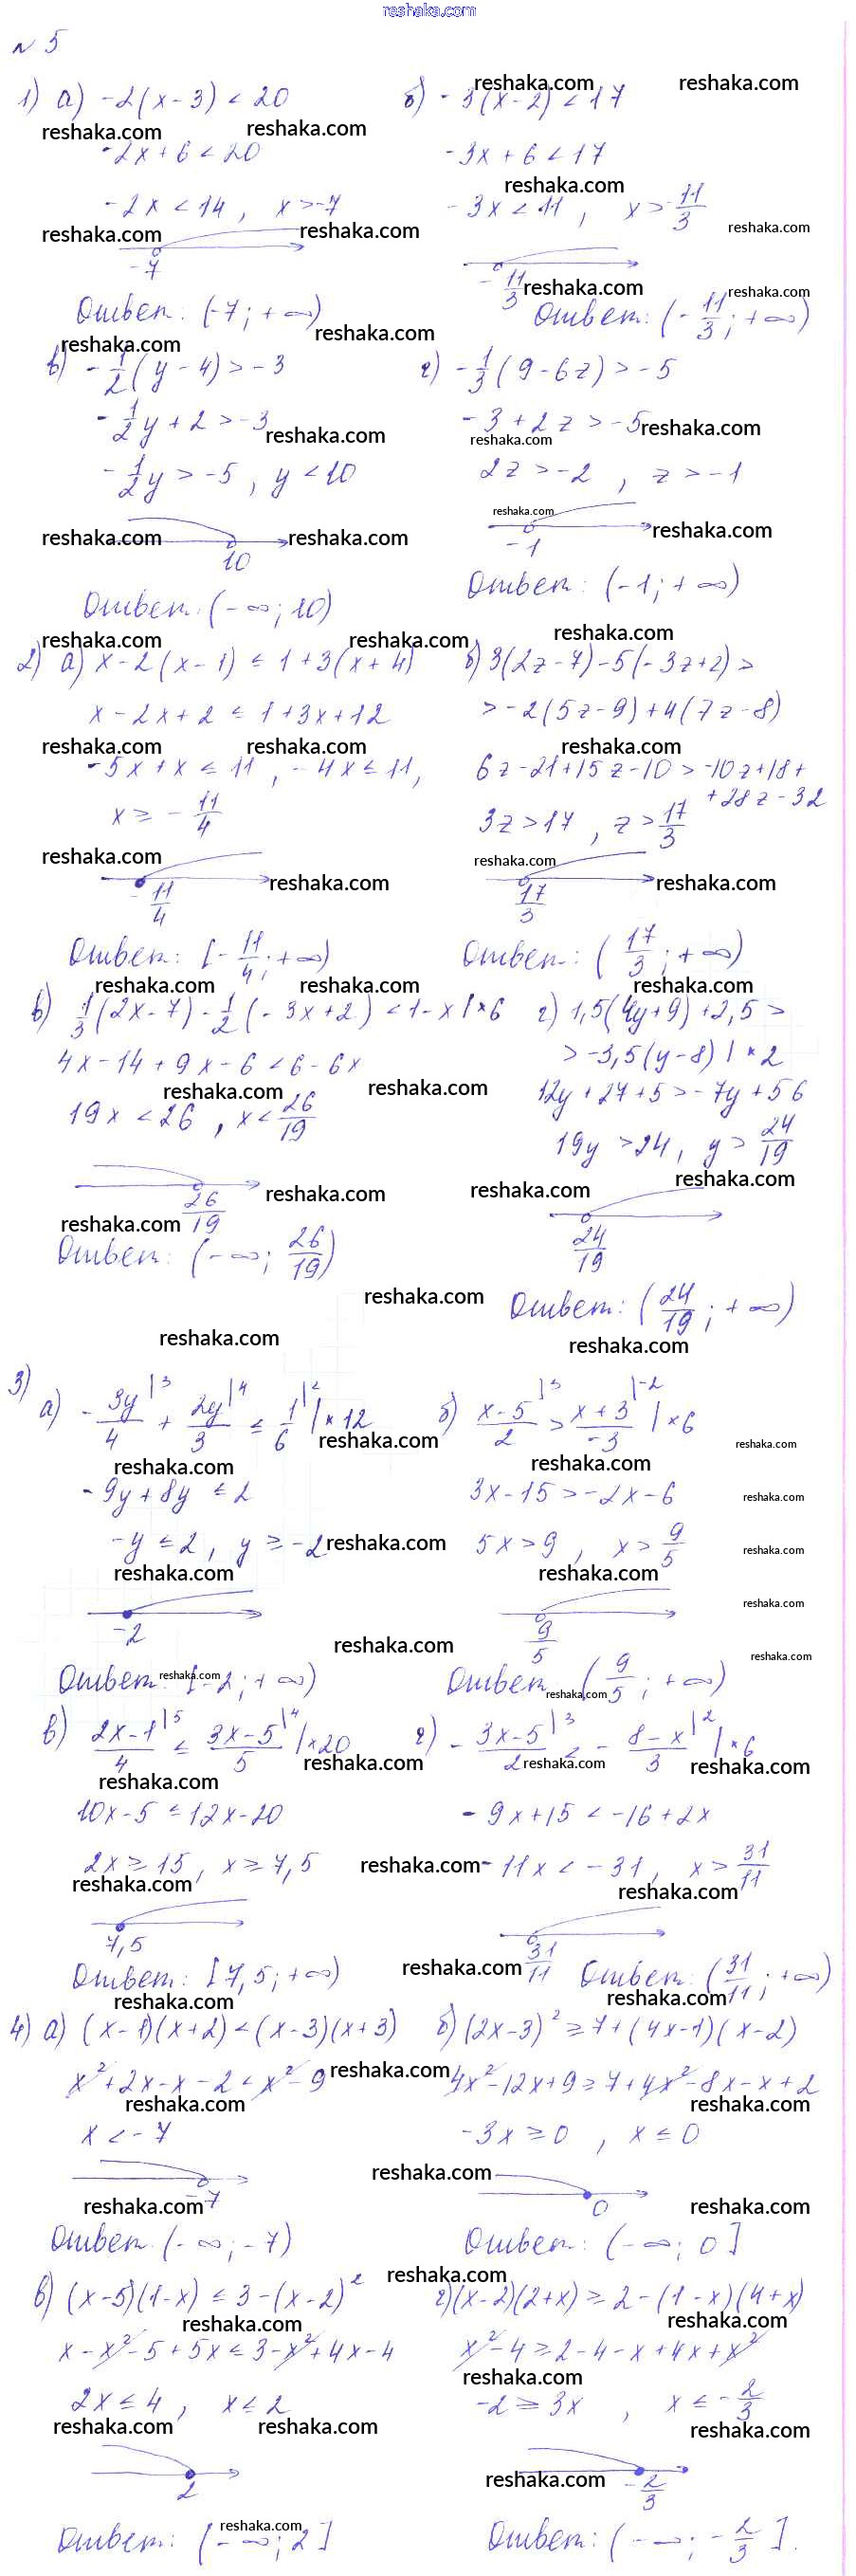 reshaka.com
№ 5
1) а) -2(x-3) < 20
-2x+6 < 20
-2x < 14, x > -7
-7
Ответ: (-7; +∞)
б) -3(x-2) < 17
-3x+6 < 17
-3x < 11, x > -11/3
-11/3
Ответ: (-11/3; +∞)
в) -1/2(y-4) > -3
-1/2y+2 > -3
-1/2y > -5, y < 10
10
Ответ: (-∞; 10)
г) -1/3(9-6z) > -5
-3+2z > -5
2z > -2, z > -1
-1
Ответ: (-1; +∞)
2) а) x-2(x-1) ≤ 1+3(x+4)
x-2x+2 ≤ 1+3x+12
-5x+x ≤ 11, -4x ≤ 11,
x ≥ -11/4
-11/4
Ответ: [-11/4; +∞)
б) 3(2z-7)-5(-3z+2) >
> -2(5z-9)+4(7z-8)
6z-21+15z-10 > -10z+18+
+28z-32
3z > 17, z > 17/3
17/3
Ответ: (17/3; +∞)
в) 1/3(2x-7)-1/2(-3x+2) < 1-x |×6
4x-14+9x-6 < 6-6x
19x < 26, x < 26/19
26/19
Ответ: (-∞; 26/19)
г) 1,5(4y+9)+2,5 >
> -3,5(y-8) |×2
12y+27+5 > -7y+56
19y > 24, y > 24/19
24/19
Ответ: (24/19; +∞)
3)
а) -3y/4 |3 + 2y/3 |4 ≤ 1/6 |2 |×12
-9y+8y ≤ 2
-y ≤ 2, y ≥ -2
-2
Ответ: [-2; +∞)
б) x-5/2 |3 > x+3/-3 |-2 |×6
3x-15 > -2x-6
5x > 9, x > 9/5
9/5
Ответ (9/5; +∞)
в) 2x-1/4 |5 ≤ 3x-5/5 |4 |×20
10x-5 ≤ 12x-20
2x ≥ 15, x ≥ 7,5
7,5
Ответ: [7,5; +∞)
г) -3x-5/2 |3 < -8-x/3 |2 |×6
-9x+15 < -16+2x
-11x < -31, x > 31/11
31/11
Ответ: (31/11; +∞)
4) а) (x-1)(x+2) < (x-3)(x+3)
x²+2x-x-2 < x²-9
x < -7
-7
Ответ (-∞; -7)
б) (2x-3)² ≥ 7+(4x-1)(x-2)
4x²-12x+9 ≥ 7+4x²-8x-x+2
-3x ≥ 0, x ≤ 0
0
Ответ: (-∞; 0]
в) (x-5)(1-x) ≤ 3-(x-2)²
x-x²-5+5x ≤ 3-x²+4x-4
2x ≤ 4, x ≤ 2
2
Ответ: (-∞; 2]
г) (x-2)(2+x) ≥ 2-(1-x)(4+x)
x²-4 ≥ 2-4-x+4x+x²
-2 ≥ 3x, x ≤ -2/3
-2/3
Ответ: (-∞; -2/3].